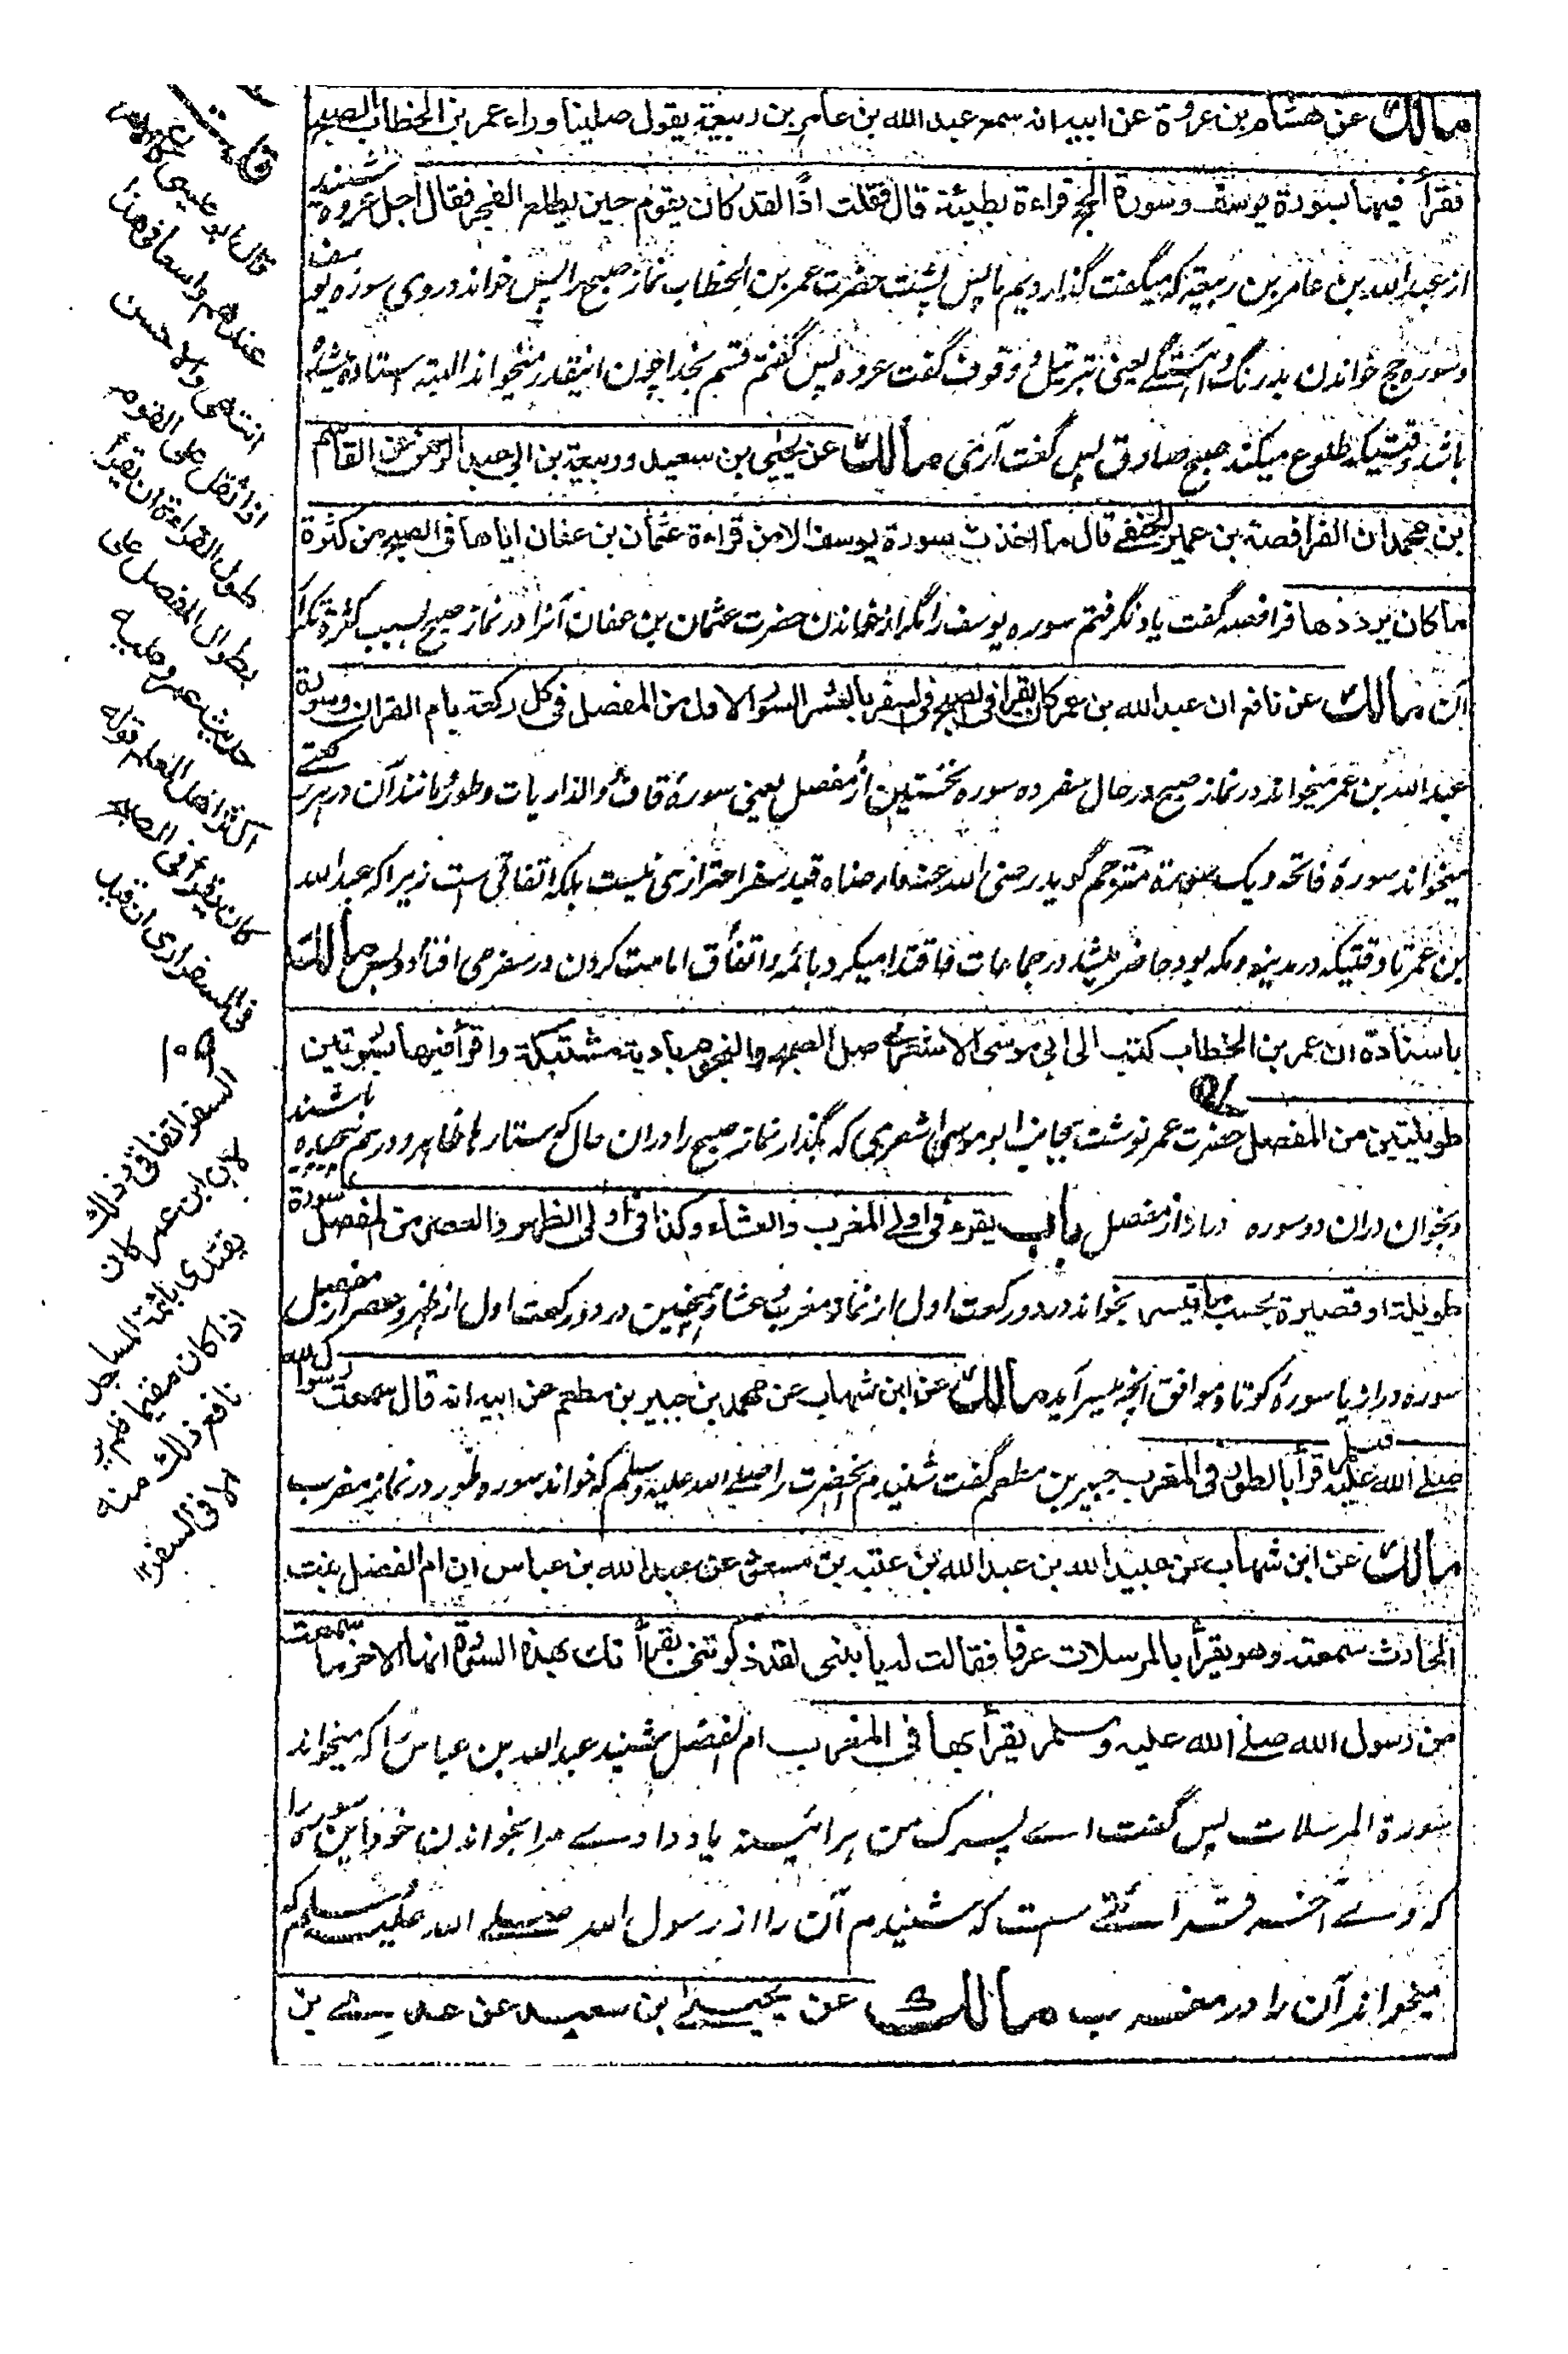 مالك عن هشام بن عروة عن ابيه انه سمع عبد الله بن عامر بن ربيعة يقول صلينا وراء عمر بن الخطاب الصبح
فقرأ فيها بسورة يوسف وسورة الحج قراءة بطيئة قال فقلت اذًا لقد كان يقوم حين يطلع الفجر فقال اجل عروه شنيد
از عبد الله بن عامر بن ربيعة كه ميگفت گذارديم ما پس پشت حضرت عمر بن الخطاب نماز صبح را پس خواند دروى سوره يوسف
وسوره حج خواندن بدرنگ وآهستگے يعنى بترتيل و وقوف گفت عروه پس گفتم قسم بخدا چون اينقدر ميخواند البته استاده
باشد وقتيكه طلوع ميكند صبح صادق پس گفت آرى مالك عن يحيى بن سعيد وربيعة بن ابي عبد الرحمن عن القاسم
بن محمد ان الفرافصة بن عمير الحنفے قال ما اخذت سورة يوسف الا من قراءة عثمان بن عفان اياها فى الصبح من كثرة
ما كان يرددها فرافصه گفت ياد نگرفتم سوره يوسف را مگر از خواندن حضرت عثمان بن عفان آنرا در نماز صبح بسبب كثرة تكرار
آن مالك عن نافع ان عبد الله بن عمر كان يقرأ فى الصبح فى السفر بالعشر السور الاول من المفصل فى كل ركعة بام القران وسورة
عبد الله بن عمر ميخواند در نماز صبح در حال سفر ده سوره نخستين از مفصل يعنى سورهٔ قاف والذاريات وطور مانند آن در هر ركعتے
ميخواند سورهٔ فاتحه ويك سورة مترجم گويد رضى الله عنه وارضاه قيد سفر احترازى نيست بلكه اتفاقى است زيرا كه عبد الله
بن عمر تا وقتيكه در مدينه ومكه بود حاضر ميشد در جماعات واقتدا ميكرد بائمه واتفاق امامت كردن در سفر مى افتاد وبس مالك
باسناده ان عمر بن الخطاب كتب الى ابى موسى الاشعرى صل الصبح والنجوم بادية مشتبكة واقرأ فيها بسورتين
طويلتين من المفصل حضرت عمر نوشت بجانب ابو موسى اشعرى كه بگذار نماز صبح را دران حال كه ستارها ظاهر و درهم باشند
وبخوان دران دو سوره دراز از مفصل باب يقرء فى اولے المغرب والعشاء وكذا فى اولى الظهر والعصر من المفصل سورة
طويلة او قصيرة بحسب ما تيسر بخواند در دو ركعت اول از نماز مغرب وعشا وهمچنين در دو ركعت اول از ظهر وعصر از مفصل
سوره دراز يا سورهٔ كوتاه موافق آنچه ميسر آيد مالك عن ابن شهاب عن محمد بن جبير بن مطعم عن ابيه انه قال سمعت رسول الله
صلے الله عليه وسلم قرأ بالطور فى المغرب جبير بن مطعم گفت شنيدم آنحضرت را صلے الله عليه وسلم كه خواند سوره طور در نماز مغرب
مالك عن ابن شهاب عن عبيد الله بن عبد الله بن عتبه بن مسعود عن عبد الله بن عباس ان ام الفضل بنت
الحارث سمعته وهو يقرأ بالمرسلات عرفا فقالت له يا بنى لقد ذكرتنى بقرأتك بهذه السورة انها لاخر ما سمعت
من رسول الله صلے الله عليه وسلم يقرأ بها فى المغرب ام الفضل شنيد عبد الله بن عباس را كه ميخواند
سورة المرسلات پس گفت اے پسرك من هرآئينه ياد دادے مرا بخواندن خود اين سوره را
كه وے آخر قرائتے ست كه شنيدم آن را از رسول الله صلے الله عليه وسلم كه
ميخواند آن را در مغرب مالك عن يحيے بن سعيد عن عدے بن
عندهم واسعا فى هذا
انتهى والاحسن
اذا ثقل على القوم
طول القراءة ان يقرأ
بطوال المفصل على
حديث عمر وعليه
اكثر اهل العلم قوله
كان يقرأ فى الصبح
فى السفر ارى ان قيد
السفر اتفاقى وذلك
لان ابن عمر كان
يقتدى بائمة المساجد
اذا كان مقيما فلم ير
نافع ذلك منه
الا فى السفر ١٢